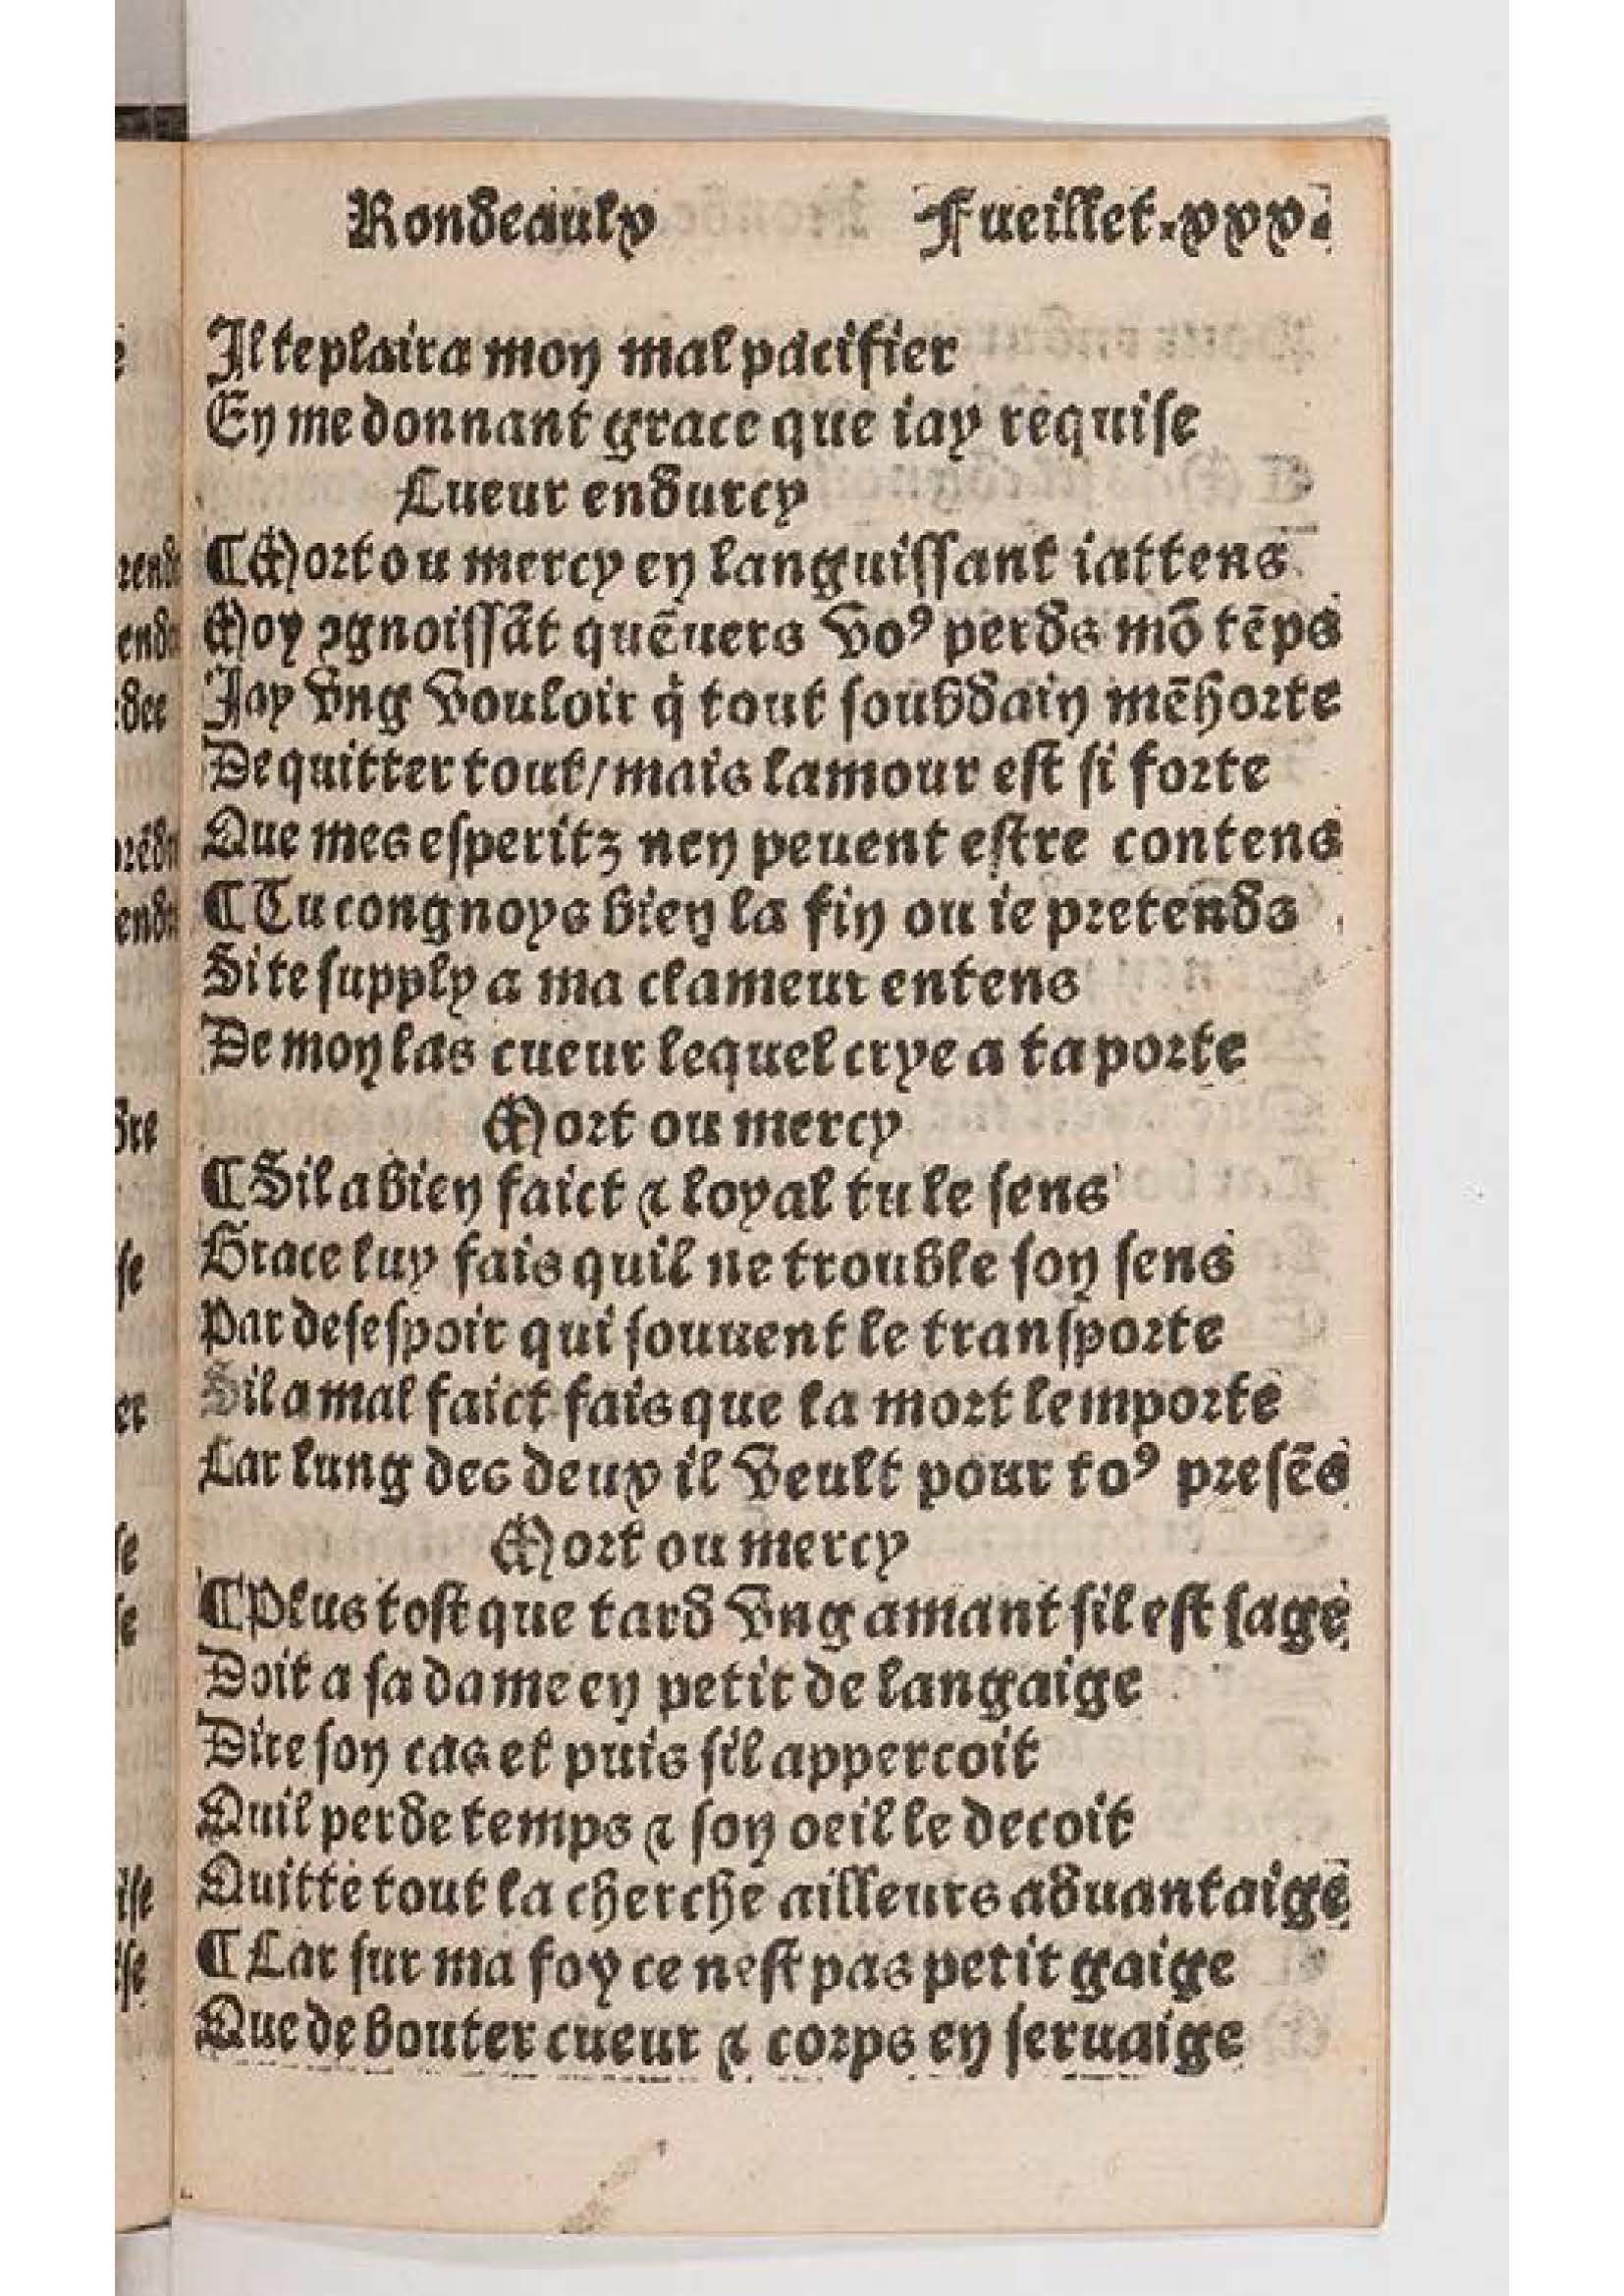 Rondeaulx Fueillet.xxx.
Il te plaira mon mal pacifier
En me donnant grace que iay requise
Cueur endurcy
¶Mort ou mercy en languissant iattens
Moy ꝯgnoissãt quẽuers voꝰ perds mõ tẽps
Jay vng vouloir q̇ tout soubdain mẽhorte
De quitter tout/mais lamour est si forte
Que mes esperitz nen peuent estre contens
¶Tu congnoys bien la fin ou ie pretends
Si te supply a ma clameur entens
De mon las cueur lequel crye a ta porte
Mort ou mercy
¶Sil a bien faict ⁊ loyal tu le sens
Grace luy fais quil ne trouble son sens
Par desespoir qui souuent le transporte
Sil a mal faict fais que la mort lemporte
Car lung des deux il veult pour toꝰ presẽs
Mort ou mercy
¶Plus tost que tard vng amant sil est sage
Doit a sa dame en petit de langaige
Dire son cas et puis sil appercoit
Quil perde temps ⁊ son oeil le decoit
Quitte tout la cherche ailleurs aduantaige
¶Car sur ma foy ce nest pas petit gaige
Que de bouter cueur ⁊ corps en seruaige